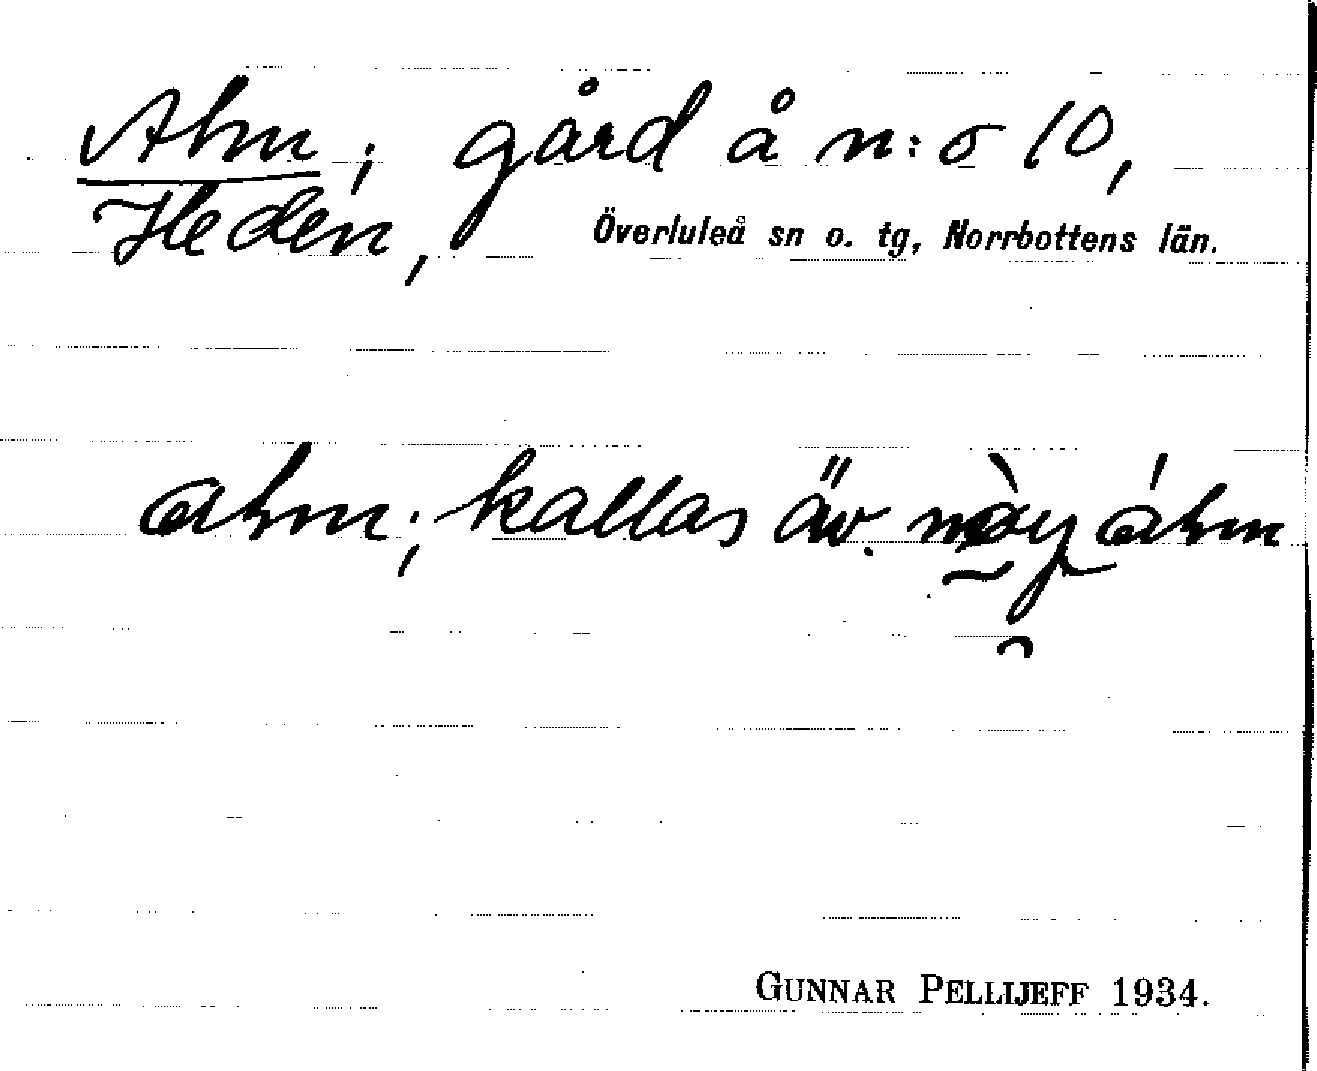 Ahm; gård å n:o 10,
Heden, Överluleå sn o. tg, Norrbottens län.
ahm; kallas äv. ahm
GUNNAR PELLIJEFF 1934.